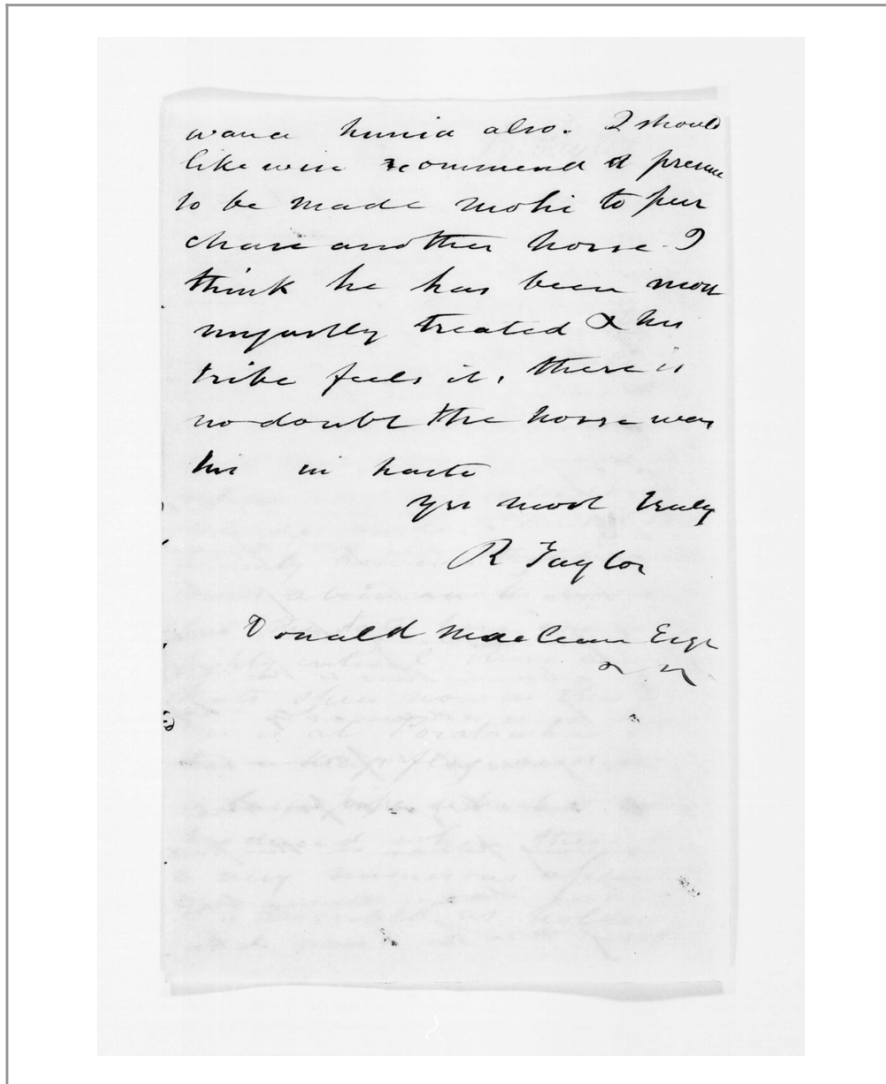 wana hunia also. I should
likewise recommend a present
to be made Mohi to pur
chase another horse - I
think he has been most
unjustly treated & his
tribe feels it, there is
no doubt the horse was
his in haste
Yrs most truly
R Taylor
Donald MacLean Esqr